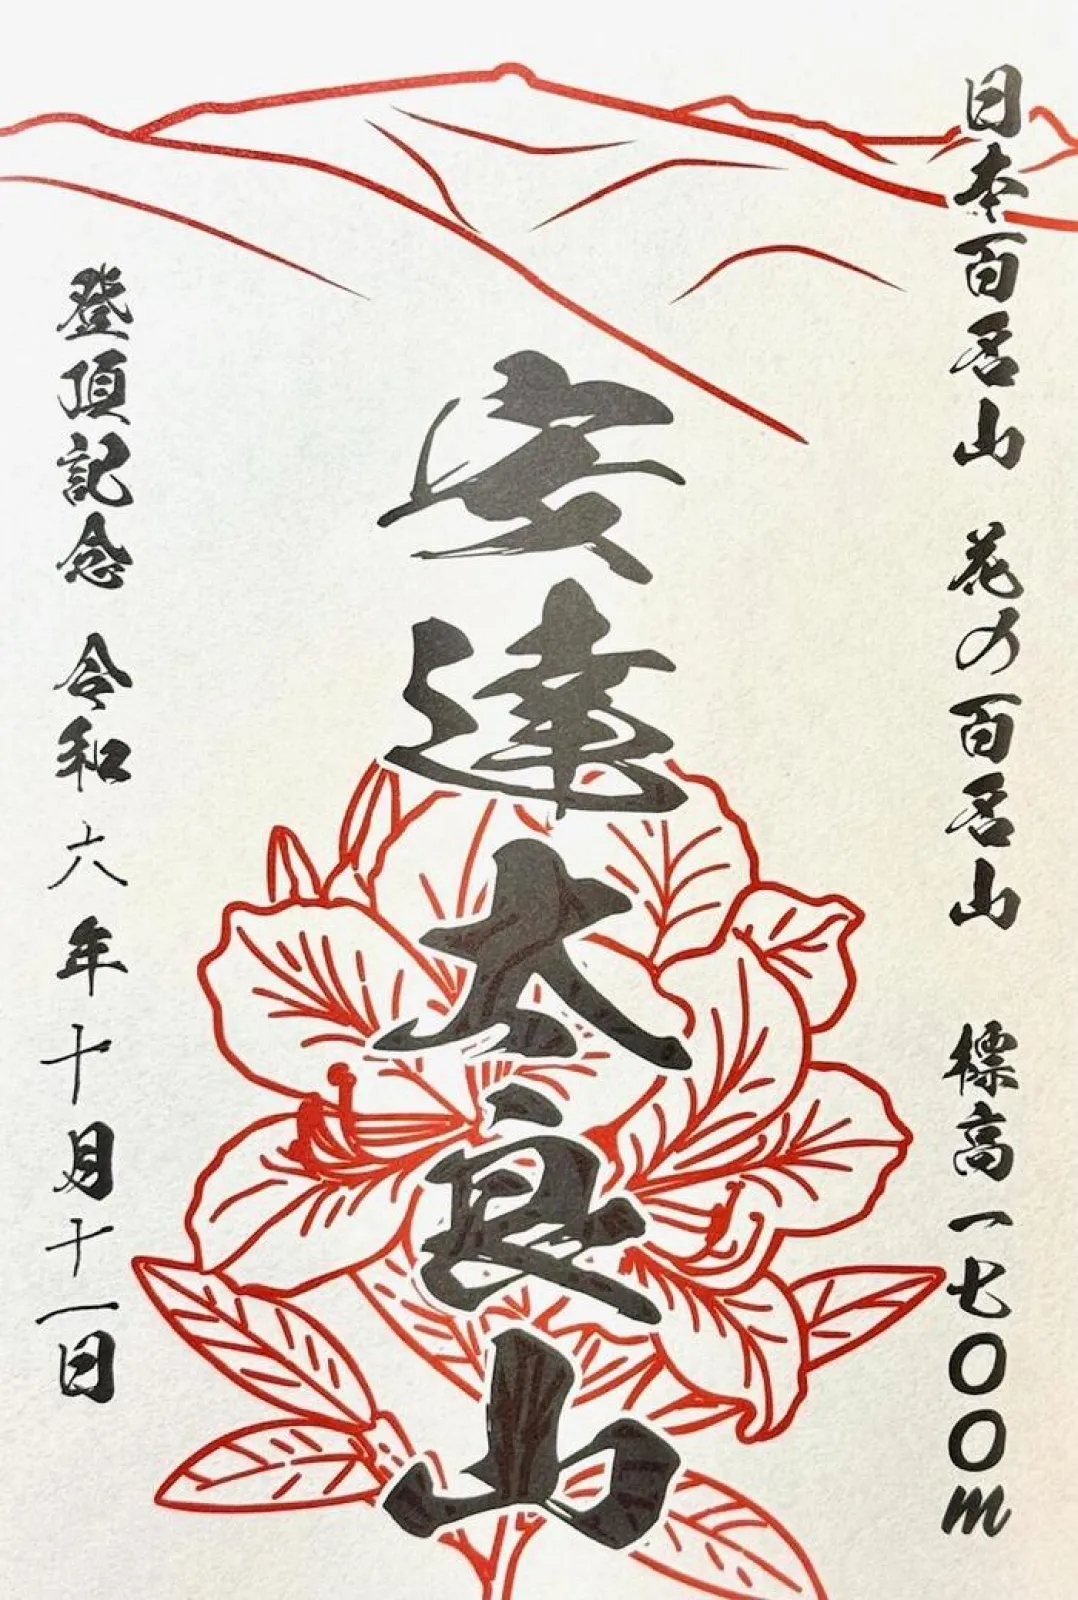 日本百名山　花の百名山　標高一七〇〇m
安達太良山
登頂記念　令和六年十月十一日